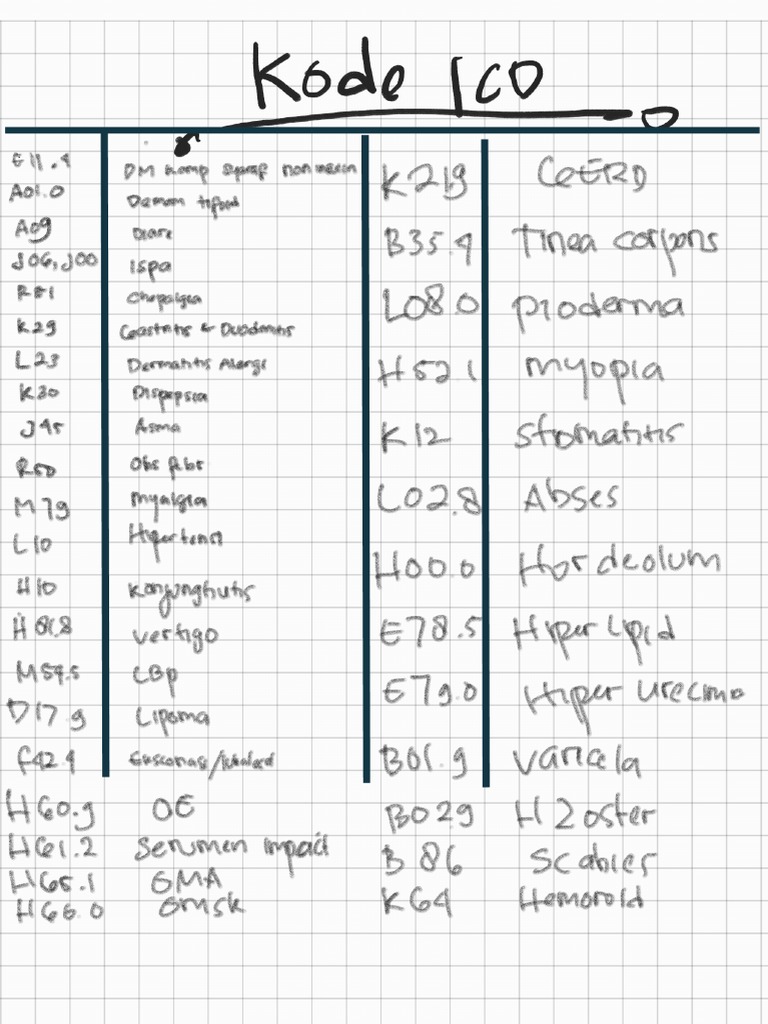 Kode ICD
E11.4 DM komp syaraf non insulin
A01.0 Demam tifoid
A09 Diare
J06, J00 Ispa
R51 Chepalgea
K29 Gastritis & Duodenitis
L23 Dermatitis Alergi
K30 Dispepsia
J45 Asma
R50 Obs febr
M79 myalgia
L10 Hipertensi
H10 Konjungtivitis
H81.8 vertigo
M54.5 LBP
D17.9 Lipoma
F42.4
H60.9 OE
H61.2 Serumen impact
H65.1 OMA
H66.0 OMSK
K219 GERD
B35.4 Tinea corporis
L08.0 pioderma
H52.1 myopia
K12 stomatitis
L02.8 Abses
H00.0 Hordeolum
E78.5 Hiper Lipid
E79.0 Hiper urecimo
B01.9 varicela
B029 H Zoster
B 86 Scabies
K64 Hemoroid